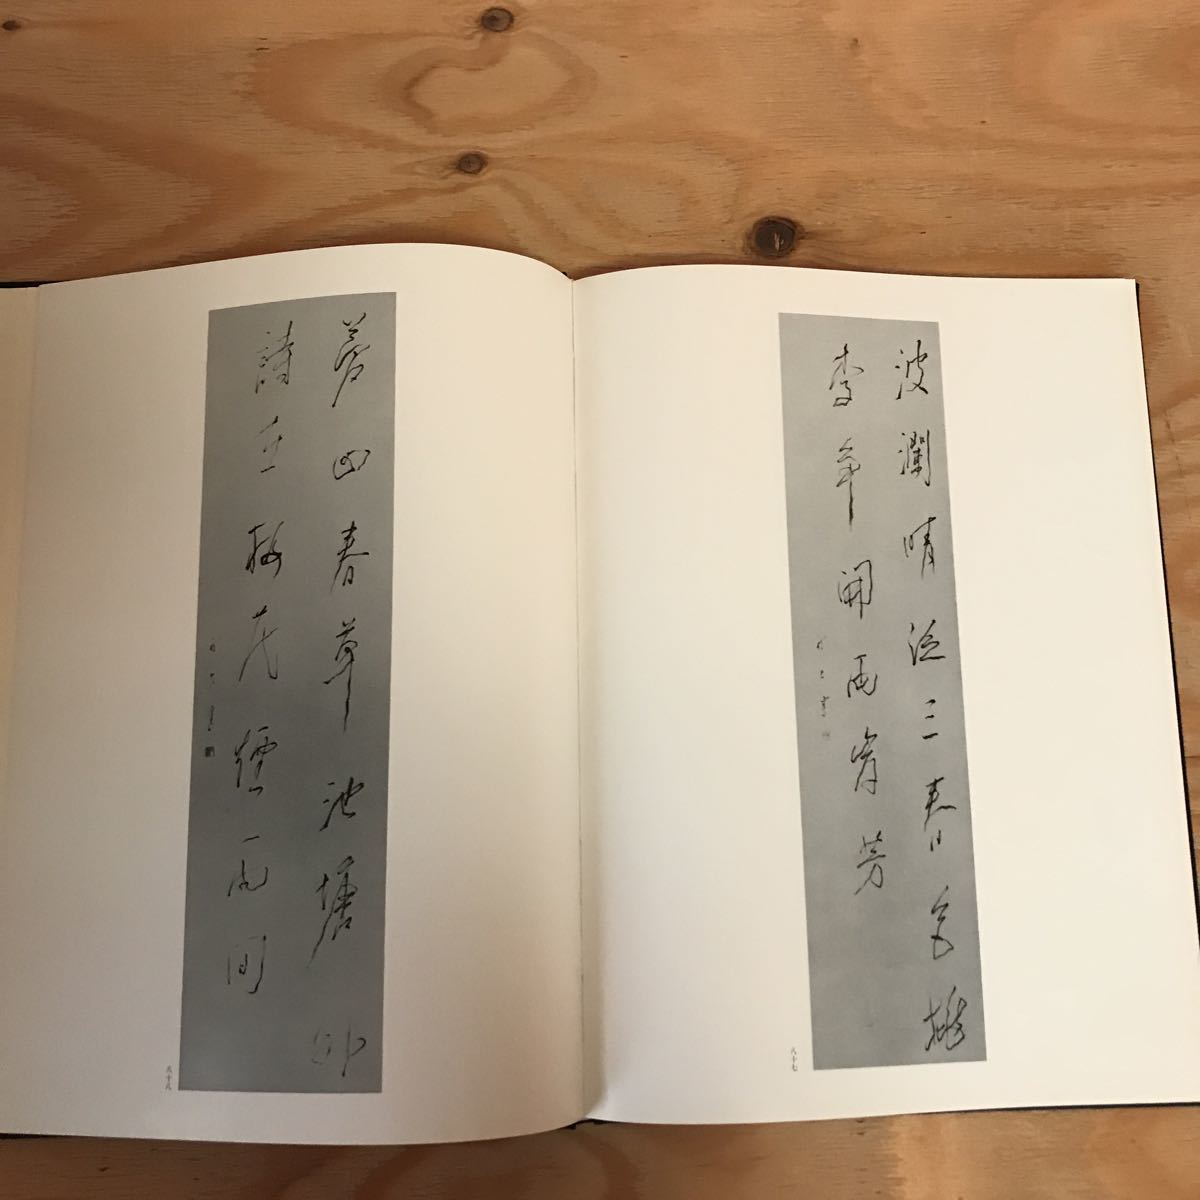 波瀾晴泛三春色桃
李争開両岸芳
八十七
夢回春草池塘外
詩在梅花煙雨間
八十八